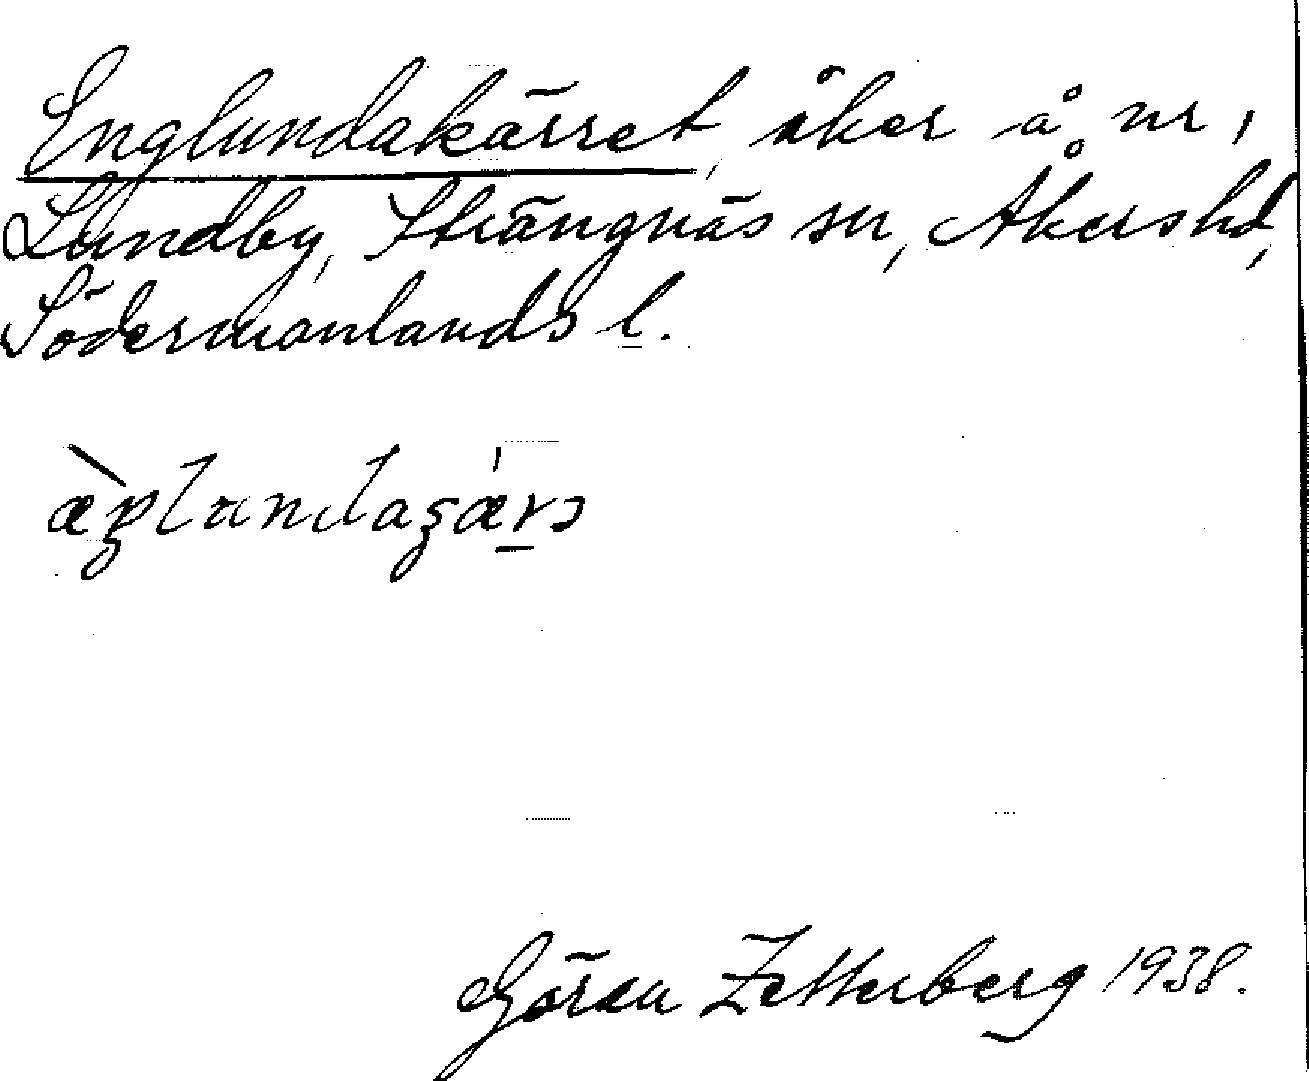 Englundakärret, åker å nr 1,
Lundby, Strängnäs sn, Åkers hd,
Södermanlands l.
Göran Zetterberg 1938.